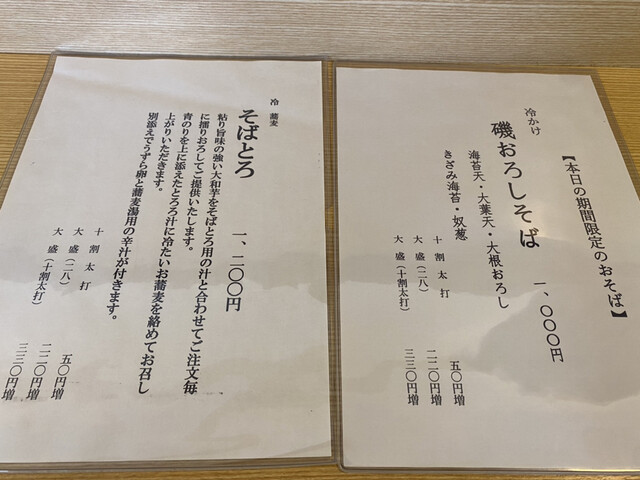 【本日の期間限定のおそば】
冷かけ
磯おろしそば 一、〇〇〇円
海苔天・大葉天・大根おろし
きざみ海苔・奴葱
十割太打 五〇円増
大盛(二八) 二二〇円増
大盛(十割太打) 三三〇円増
冷 蕎麦
そばとろ 一、二〇〇円
粘り旨味の強い大和芋をそばとろ用の汁と合わせてご注文毎
に擂りおろしてご提供いたします。
青のりを上に添えたとろろ汁に冷たいお蕎麦を絡めてお召し
上がりいただきます。
別添えでうずら卵と蕎麦湯用の辛汁が付きます。
十割太打 五〇円増
大盛(二八) 二二〇円増
大盛(十割太打) 三三〇円増